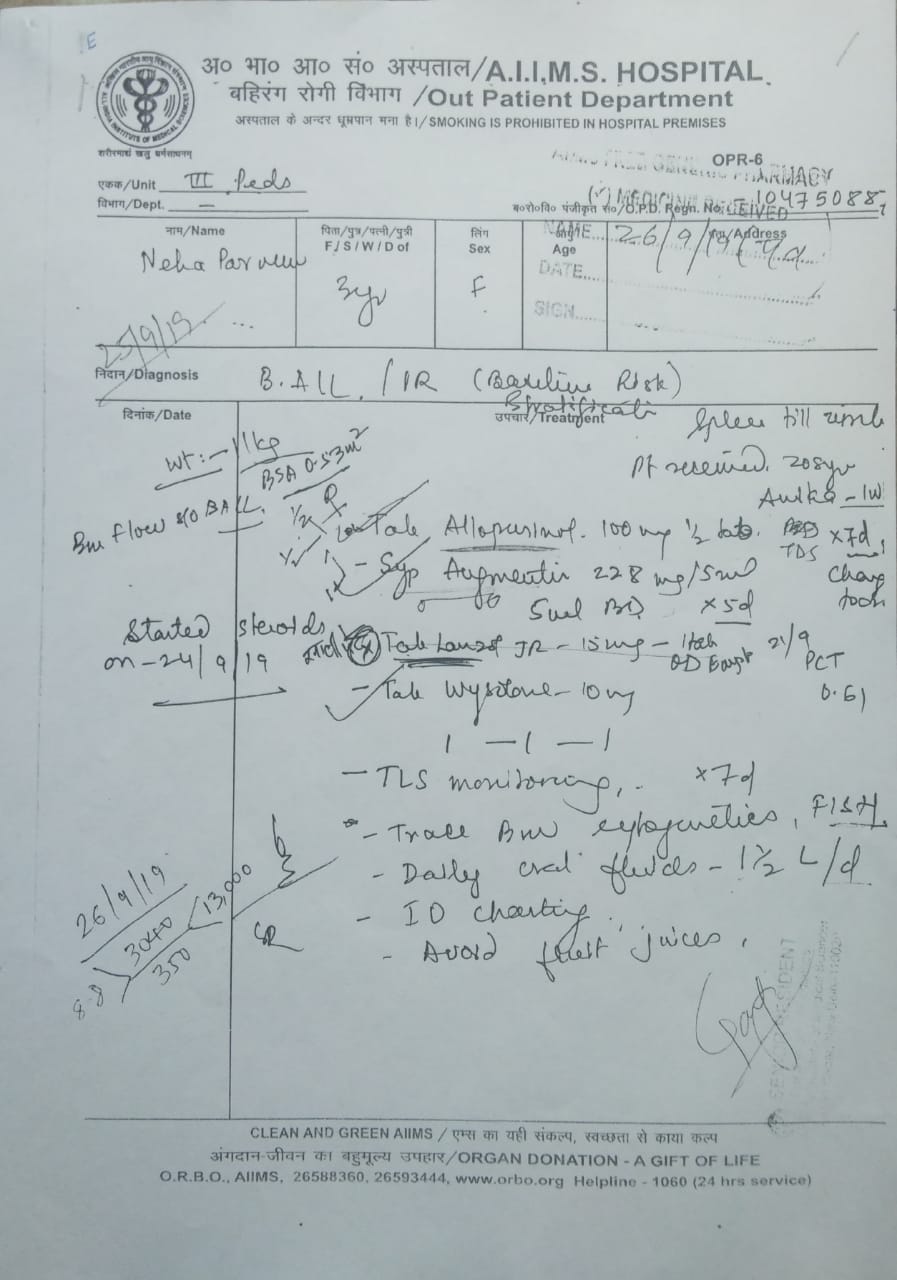 अ० भा० आ० सं० अस्पताल/A.I.I.M.S. HOSPITAL
बहिरंग रोगी विभाग /Out Patient Department
अस्पताल के अन्दर धूम्रपान मना है।/SMOKING IS PROHIBITED IN HOSPITAL PREMISES
शरीरमाद्यं खलु धर्मसाधनम्
OPR-6
PHARMACY
एकक/Unit III Peds
विभाग/Dept. —
ब०रो०वि० पंजीकृत सं०/O.P.D. Regn. No. 104750887
नाम/Name
पिता/पुत्र/पत्नी/पुत्री
F/S/W/D of
लिंग
Sex
Age
/Address
NAME
DATE
SIGN
26/9/19
Neha
3yr
F
25/9/19
निदान/Diagnosis
B.ALL / IR (Baseline Risk)
दिनांक/Date
उपचार/Treatment
Spleen till
wt:- 11kg
BSA 0.53m²
Pt received.
Bm flow s/o BALL
Tab Allopurinol 100 mg ½ tab. TDS x7d
Syp Augmentin 228 mg/5ml
5ml BD x5d
Started steroids
on - 24/9/19
Tab Lanzol JR - 15mg - 1tab
OD
21/9
PCT
0.61
- Tab Wysolone - 10 mg
1 — 1 — 1
- TLS monitoring, x7d
- Trace Bm cytogenetics, FISH
- Daily oral fluids - 1½ L/d
- IO charting
- Avoid fruit juices,
26/9/19
8.8 3040 13,000
350
RESIDENT
CLEAN AND GREEN AIIMS / एम्स का यही संकल्प, स्वच्छता से काया कल्प
अंगदान-जीवन का बहुमूल्य उपहार/ORGAN DONATION - A GIFT OF LIFE
O.R.B.O., AIIMS, 26588360, 26593444, www.orbo.org Helpline - 1060 (24 hrs service)